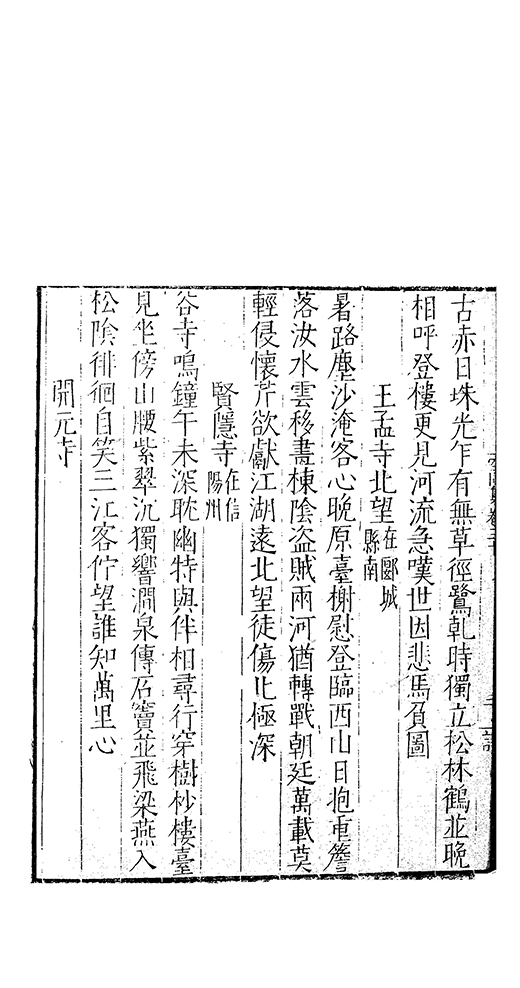 古赤日珠光乍有無草徑鷺乹時獨立松林鶴並晚
相呼登樓更見河流急嘆世因悲馬負圖
王孟寺北望在郾城縣南
暑路塵沙淹客心晚原臺榭慰登臨西山日抱重簷
落汝水雲移畫棟陰盜賊兩河猶轉戰朝廷萬載莫
輕侵懷芹欲獻江湖遠北望徒傷北極深
賢隱寺在信陽州
谷寺鳴鐘午未深耽幽特與伴相尋行穿樹杪樓臺
見坐傍山腰紫翠沉獨響澗泉傳石竇並飛梁燕入
松陰徘徊自笑三江客佇望誰知萬里心
開元寺